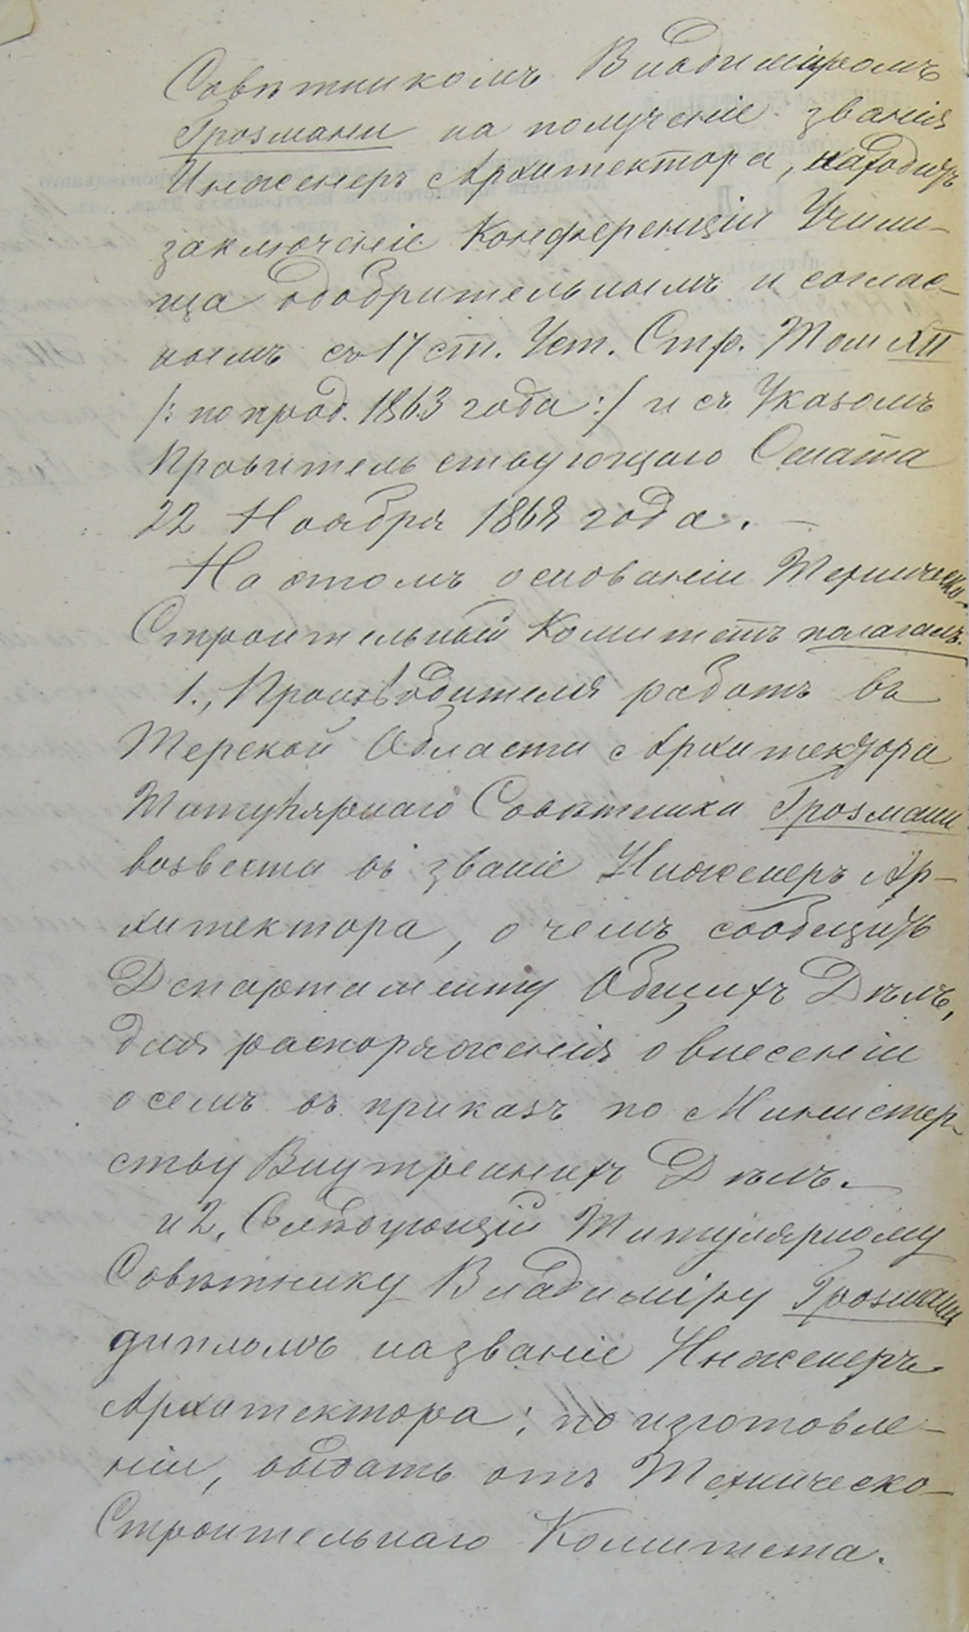 Совѣтникомъ Владиміромъ
Грозмани на полученіе званія
Инженеръ Архитектора, находитъ
заключеніе Конференціи Учили-
ща одобрительнымъ и соглас-
нымъ съ 17 ст. Уст. Стр. Том XII
/: по прод. 1863 года :/ и съ Указомъ
Правительствующаго Сената
22 Ноября 1868 года. —
На этомъ основаніи Техническо-
Строительный Комитетъ полагалъ:
1., Производителя работъ въ
Терской Области Архитектора
Титулярнаго Совѣтника Грозмани
возвести въ званіе Инженеръ Ар-
хитектора, о чемъ сообщить
Департаменту Общихъ Дѣлъ,
для распоряженія о внесеніи
о семъ въ приказъ по Министер-
ству Внутреннихъ Дѣлъ. —
и 2, Слѣдующій Титулярному
Совѣтнику Владиміру Грозмани
дипломъ на званіе Инженеръ
Архитектора; по изготовле-
ніи, выдать отъ Техническо-
Строительнаго Комитета.